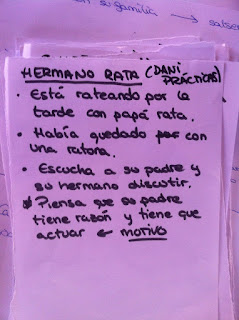 su familia →
HERMANO RATA (DANI
PRÁCTICAS)
• Está rateando por la
tarde con papá rata.
• Había quedado por con
una ratora.
• Escucha a su padre y
su hermano discutir.
Piensa que su padre
tiene razón y tiene que
actuar ← MOTIVO